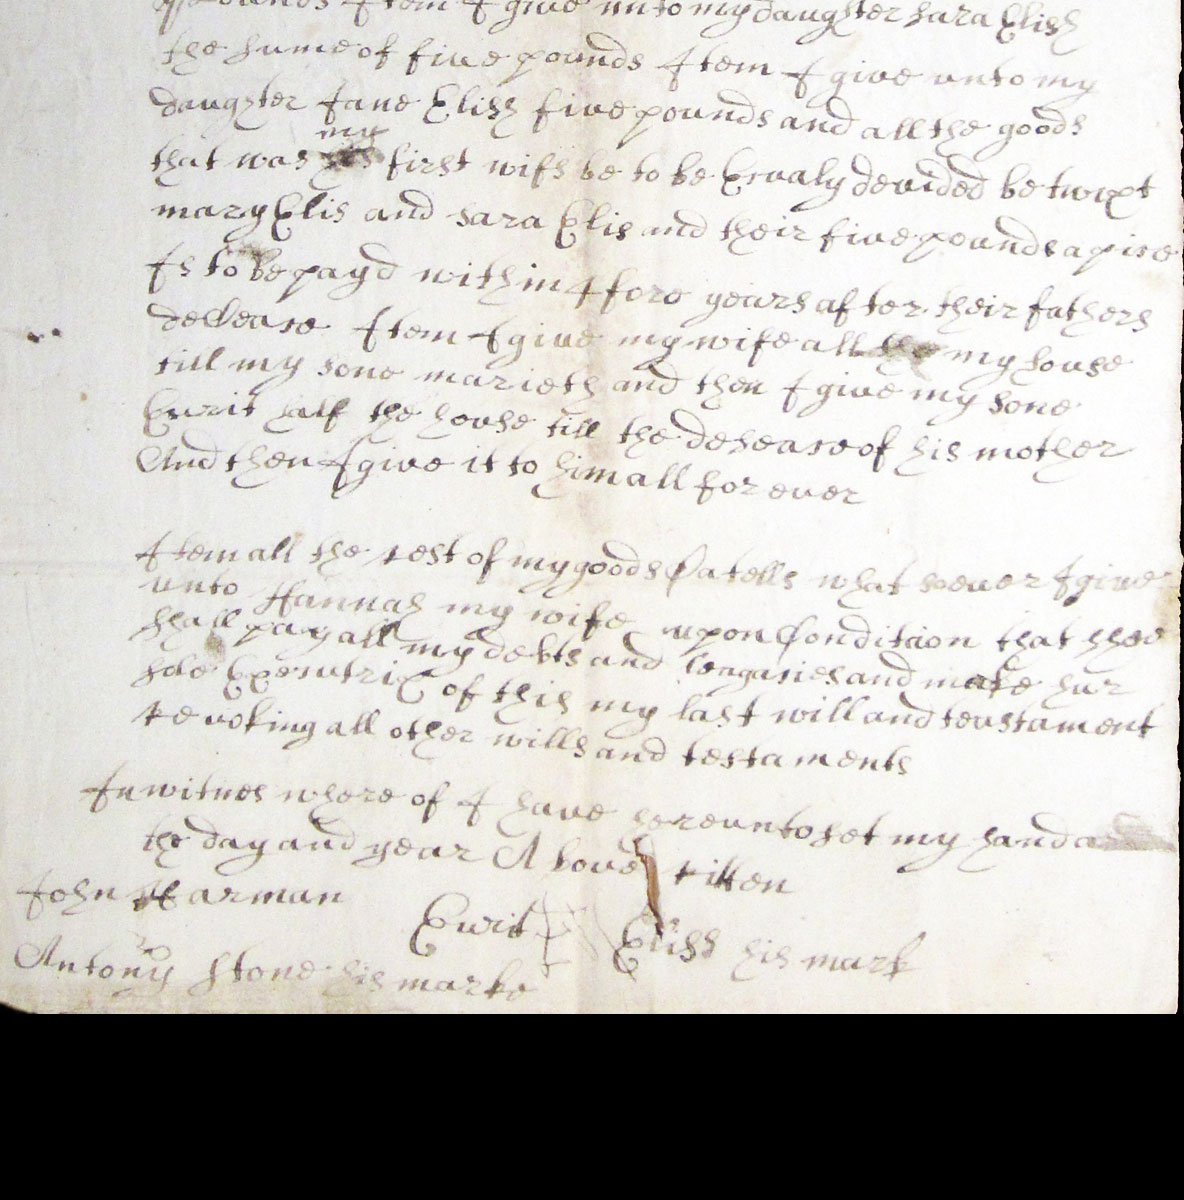 pounds Item I give unto my daughter sara Eliss
the sume of five pounds Item I give unto my
daughter Jane Eliss five pounds and all the goods
that was my first wifs be to be Equaly devided be twixt
mary Elis and sara Elis and their five pounds a pice
Is to be payd within fore years after their fathers
deccease Item I give my wife all my house
till my sone marieth and then I give my sone
Ewrit half the house till the desease of his mother
And then I give it to him all for ever
Item all the rest of my goods Catells what soever I give
unto Hannah my wife upon Condition that shee
shall pay all my debts and leagasies and make hur
sole Executrix of this my last will and teustament
revoking all other wills and testaments
In witnes where of I have hereunto set my hand
the day and year Above ritten
John Harman
Ewrit Eliss his mark
Antony Stone his marke